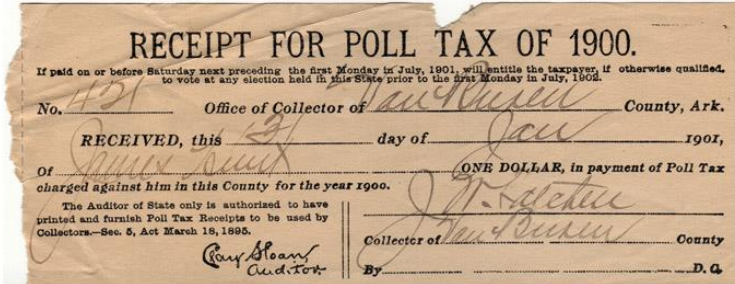 RECEIPT FOR POLL TAX OF 1900.
If paid on or before Saturday next preceding the first Monday in July, 1901, will entitle the taxpayer, if otherwise qualified,
to vote at any election held in this State prior to the first Monday in July, 1902.
No. 421 Office of Collector of Van Buren County, Ark.
RECEIVED, this 31 day of Jan 1901,
Of James Hunt ONE DOLLAR, in payment of Poll Tax
charged against him in this County for the year 1900.
The Auditor of State only is authorized to have
printed and furnish Poll Tax Receipts to be used by
Collectors.—Sec. 5, Act March 18, 1895.
Clay Sloan
Auditor.
J. W.
Collector of Van Buren County
By D. C.